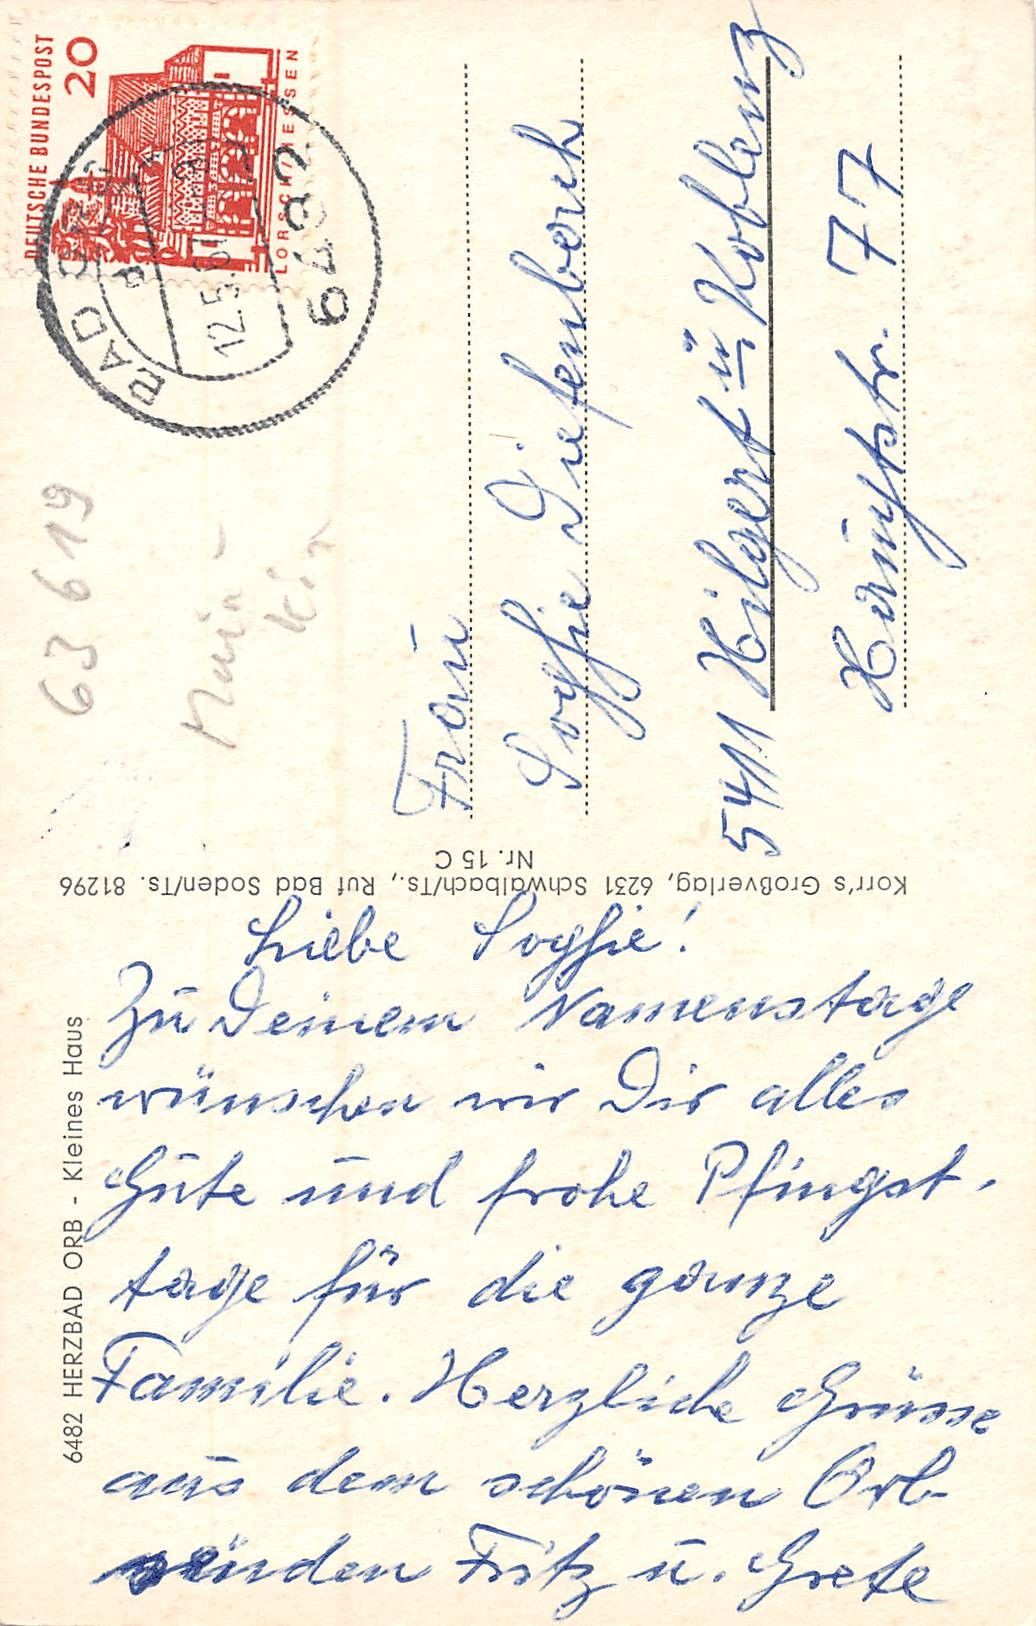 6482 HERZBAD ORB - Kleines Haus
Liebe Sophie!
Zu Deinem Namenstage
wünschen wir Dir alles
Gute und frohe Pfingst-
tage für die ganze
Familie. Herzliche Grüsse
aus dem schönen Orb
senden Fritz u. Grete
Korr's Großverlag, 6231 Schwalbach/Ts., Ruf Bad Soden/Ts. 81296
Nr. 15 C
DEUTSCHE BUNDESPOST
20
LORSCH/HESSEN
BAD ORB
12.5.
6482
63 619
Frau
Sophie Diefenbach
5411 Hilgert ü. Koblenz
Hauptstr. 77